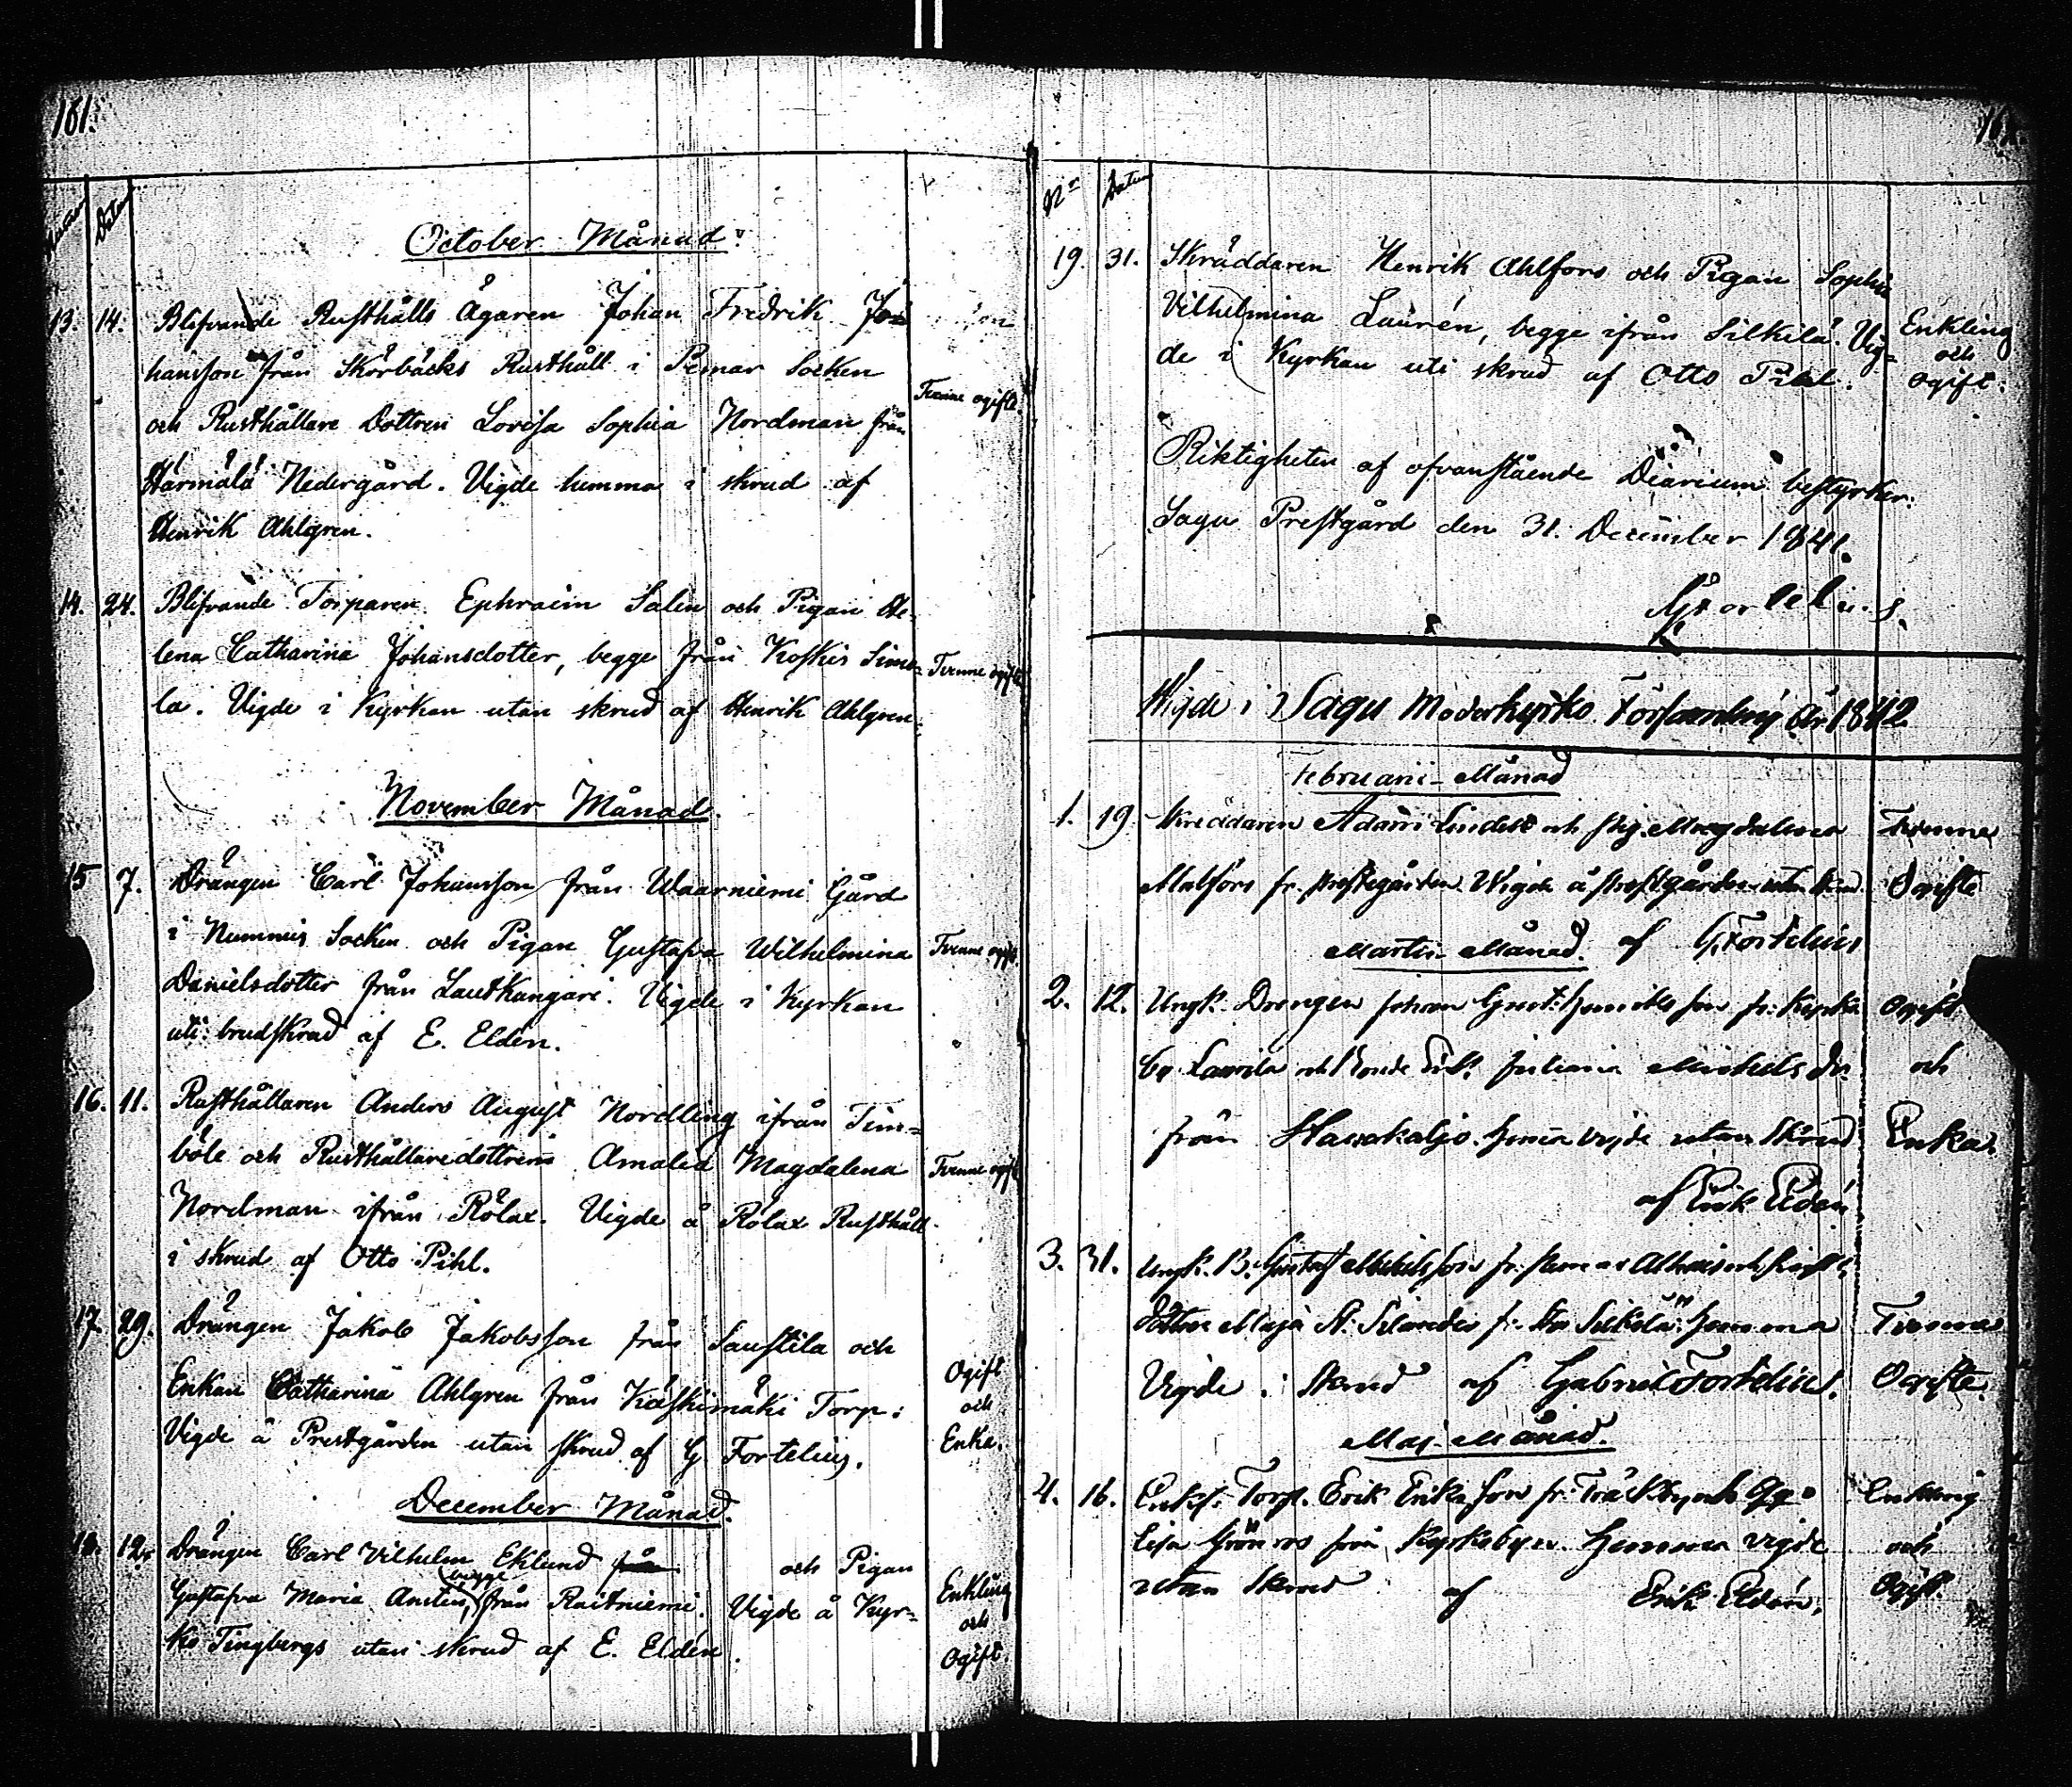 161.
Datum
October Månad.
13. 14. Blifvande Rusthålls Ägaren Johan Fredrik Jo
hansson från Skörbäcks Rusthåll i Pemar Socken
och Rusthållare Dottren Lovisa Sophia Nordman från
Tvenne ogifte
Härmälä Nedergård. Vigde hemma i skrud af
Henrik Ahlgren.
14. 24. Blifvande Torparen Ephraim Salin och Pigan He-
lena Catharina Johansdotter, begge från Koskis Sime-
Tvenne ogifte
la. Vigde i Kyrkan utan skrud af Henrik Ahlgren.
November Månad.
15 7. Drängen Carl Johansson från Waarniemi Gård
i Nummis Socken och Pigan Gustafva Wilhelmina
Tvenne ogift.
Danielsdotter från Lautkangari. Vigde i Kyrkan
uti brudskrud af E. Eldén.
16. 11. Rusthållaren Anders August Nordling ifrån Tim-
böle och Rusthållaredottren Amalia Magdalena
Tvenne ogift
Nordman ifrån Rölax. Vigde å Rölax Rusthåll
i skrud af Otto Pihl.
17. 29. Drängen Jakob Jakobsson från Saustila och
Enkan Catharina Ahlgren från Käskimäki Torp.
Vigde å Prestgården utan skrud af G Fortelius.
Ogift
och
Enka.
December Månad.
18. 12. Drängen Carl Vilhelm Eklund från och Pigan
begge
Gustafva Maria Antin, från Raitniemi. Vigde å Kyr-
ko Tingbergs utan skrud af E. Eldén.
Enkling
och
Ogift.
No Datum
19. 31. Skräddaren Henrik Ahlfors och Pigan Sophia
Vilhelmina Laurén, begge ifrån Silkilä. Vig-
de i Kyrkan uti skrud af Otto Pihl.
Enkling
och
ogift.
Riktigheten af ofvanstående Diarium bestyrker.
Sagu Prestgård den 31. December 1841.
G Fortelius.
Wigde i Sagu Moderkyrko Församling År 1842
Februarii Månad
1. 19 Skräddaren Adam Lindell och Pig. Magdalena
Malfors fr. Prestegården Wigde å Prestgården utan Skrud
Tvenne
Ogifte
Martii Månad. af G. Fortelius
2. 12. Ungk. Drengen Johan Gust. Henriksson fr.
by Laurila och Bonde Enk. Juliana Michelsdr
från hemma vigde utan Skrud
af Erik Eldén
Ogift
och
Enka.
3. 31. Ungk. B. Gustaf Michelsson fr. Pemar och
Dottren Maja St. Silander fr. Silkilä hemma
Vigde i Skrud af Gabriel Fortelius.
Tvenne
Ogifte.
Maj Månad.
4. 16. Enkl. Torp. Erik Eriksson fr. Träskby och Pig.
Lisa Grönros från Kyrkobyen. Hemma vigde
utan Skrud af Erik Eldén.
Enkling
och
Ogift.